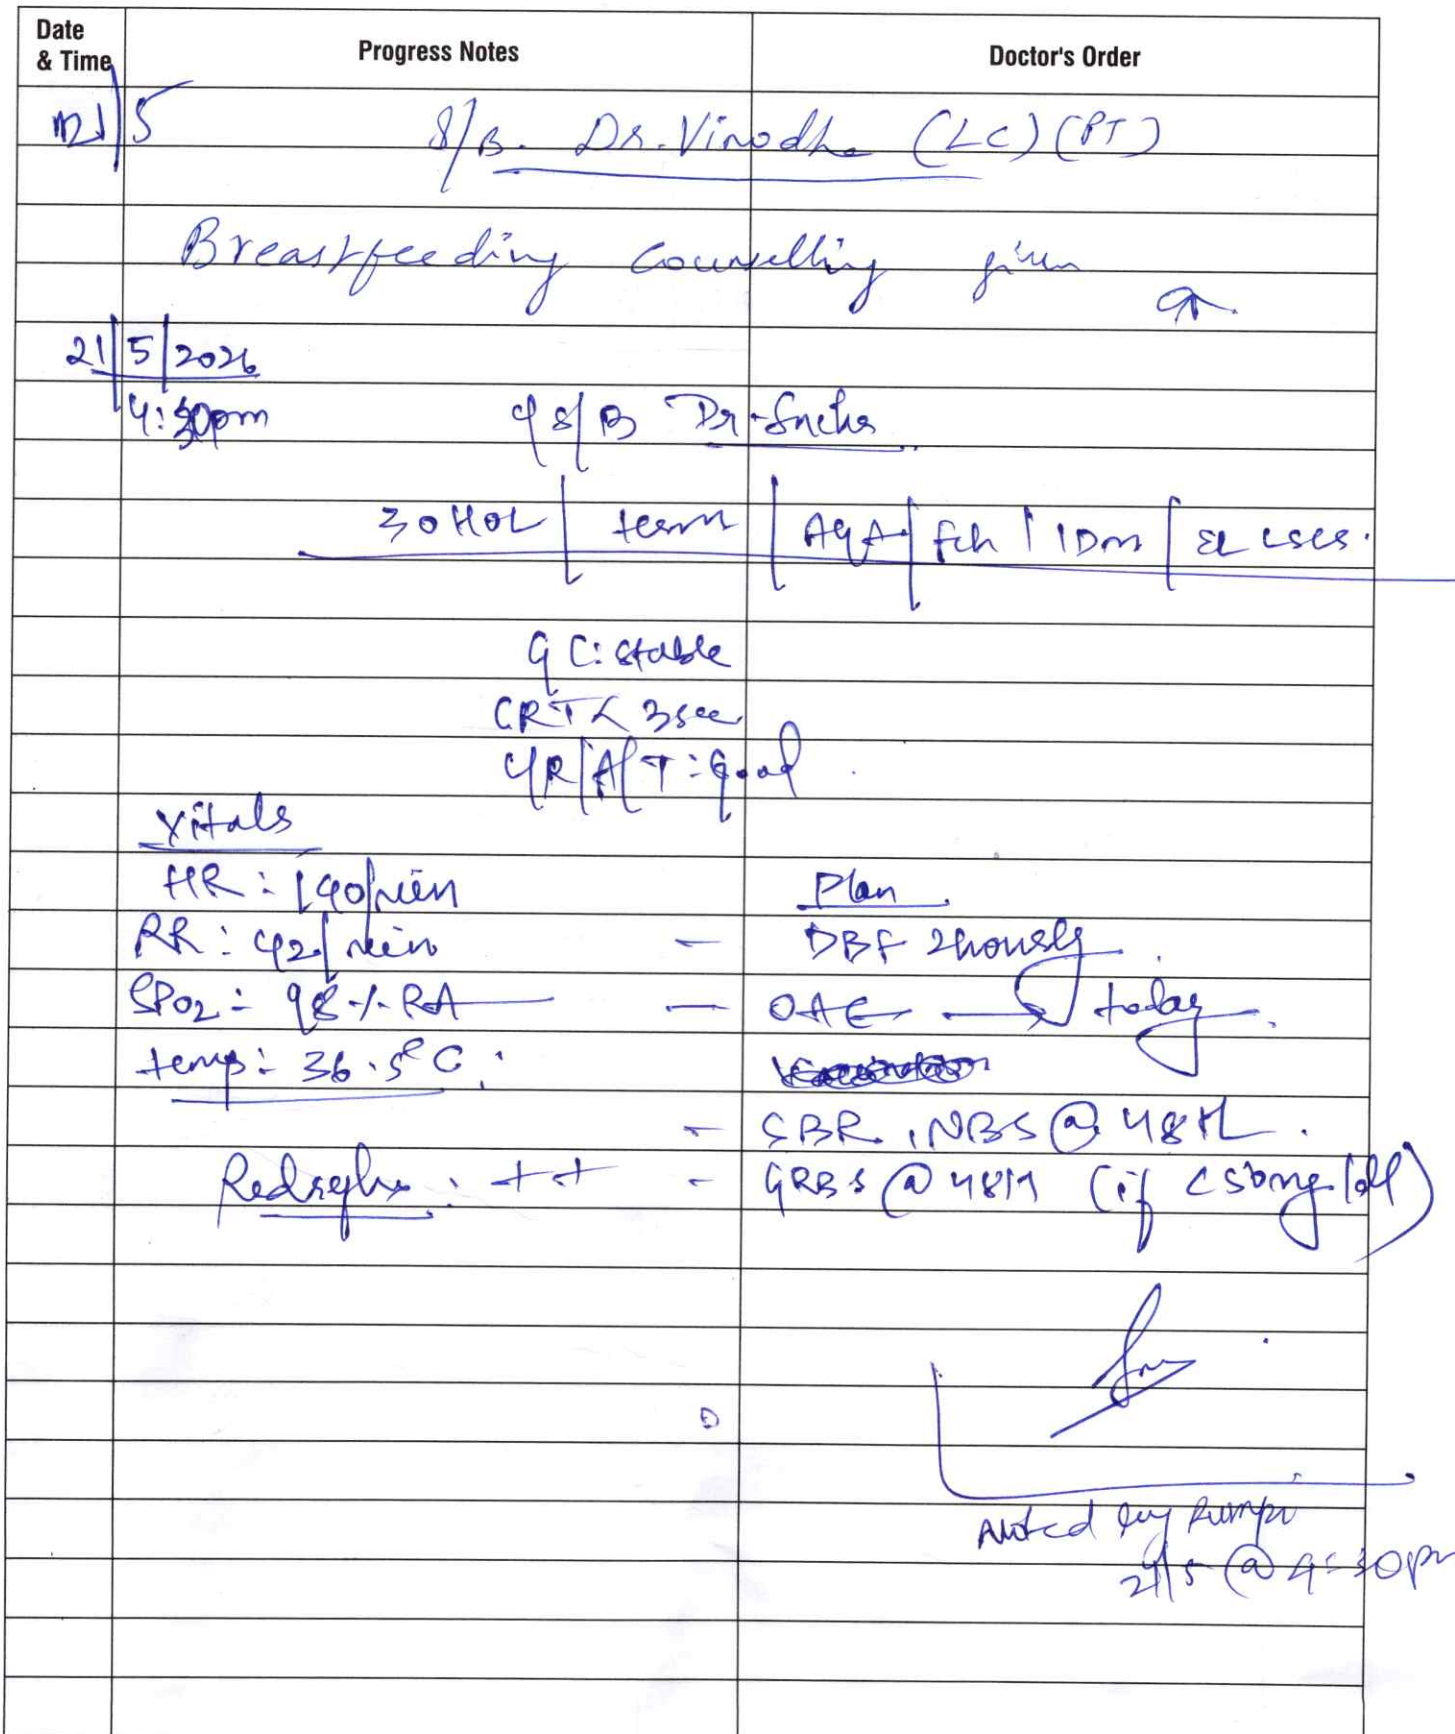 Date & Time Progress Notes Doctor's Order
21/5 S/B. Dr. Vinodha (LC) (PT)
Breastfeeding counselling given
21/5/2026
4:30pm S/B Dr. Sneha
30 HOL | term | AGA | Fch | IDM | EL LSCS.
GC: stable
CRT < 3 sec
C/R/A/T: Good
Vitals
HR: 140/min Plan
RR: 42/min - DBF 2 hourly
SPO2: 98% RA - OAE → today
temp: 36.5°C.
- SBR, NBS @ 48HL.
: ++ - GRBS @ 48H (if < 50mg/dl)
Noted by Rumpi
21/5 @ 4:30pm